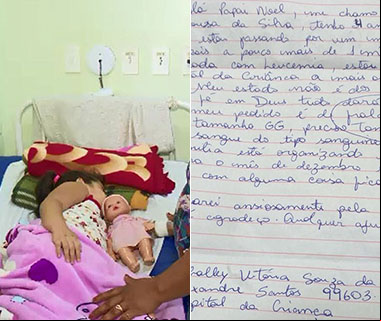 lá Papai Noel, me chamo
ousa da Silva, tenho 4 an
está passando por um um
ois a pouco mais de 1 m
ada com leucemia estou
al da Criança a mais o
Meu estado não é dos
fé em Deus tudo dará
meu pedido é d fral
tamanho GG, preciso tam
sangue do tipo sanguíne
ília está organizando
a o mês de dezembro
com alguma coisa fica
arei ansiosamente pela
agradeço. Qualquer aju
alley Vitória Souza da
exandre Santos 99603
pital da Criança